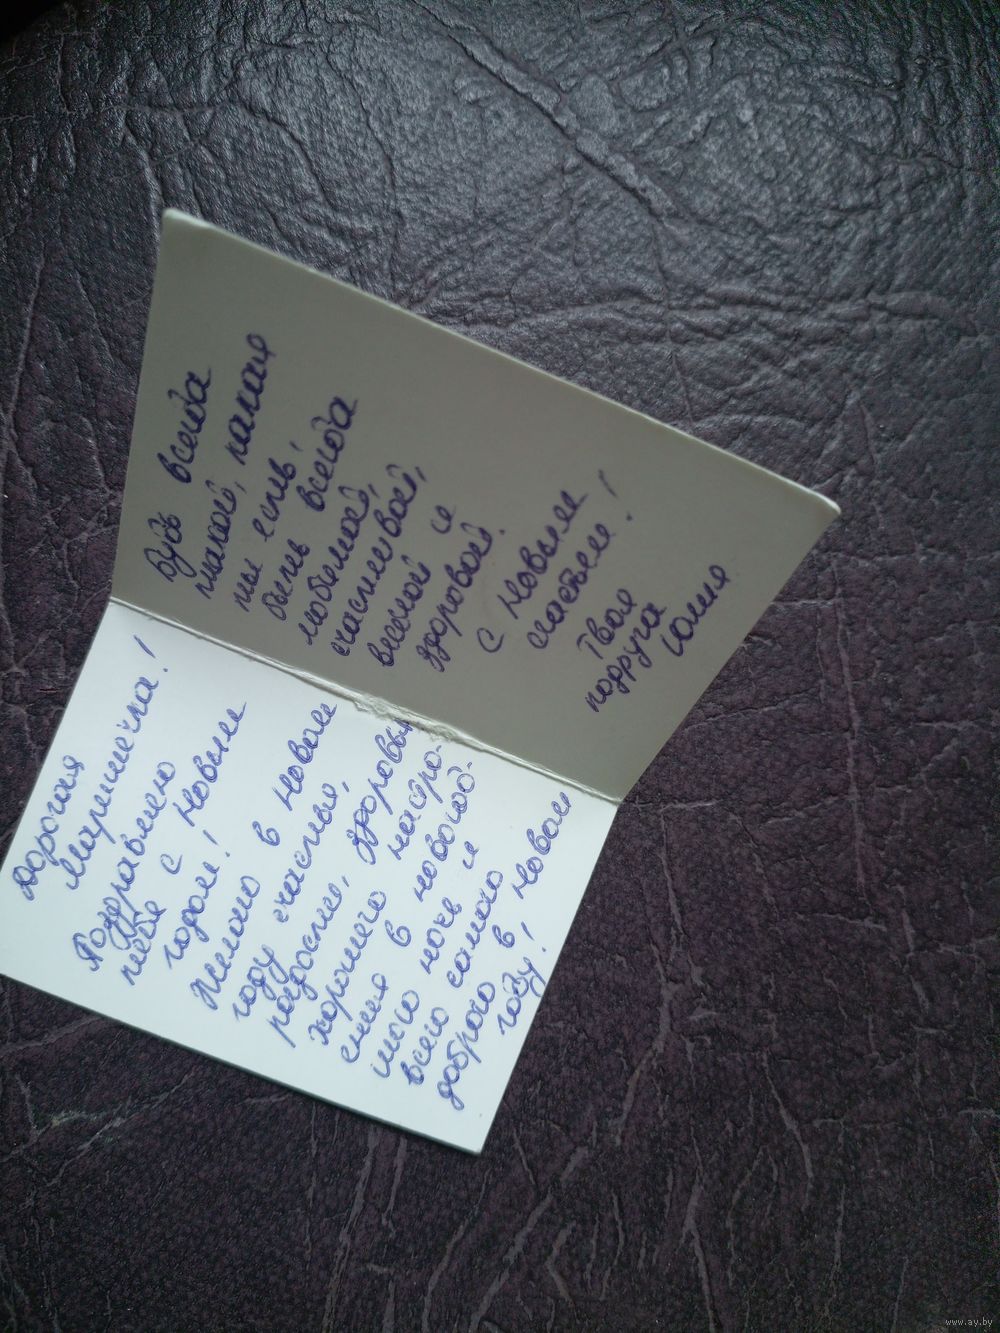 Дорогая
Мариночка!
Поздравляю
тебя с Новым
годом!
Желаю в Новом
году счастья,
радости, здоровья,
хорошего настро-
ения в новогод-
нюю ночь и
всего самого
доброго в Новом
году!
Будь всегда
такой, какая
ты есть,
будь всегда
любимой,
счастливой,
весёлой и
здоровой.
С Новым
счастьем!
Твоя
подруга
Юлия
www.ay.by